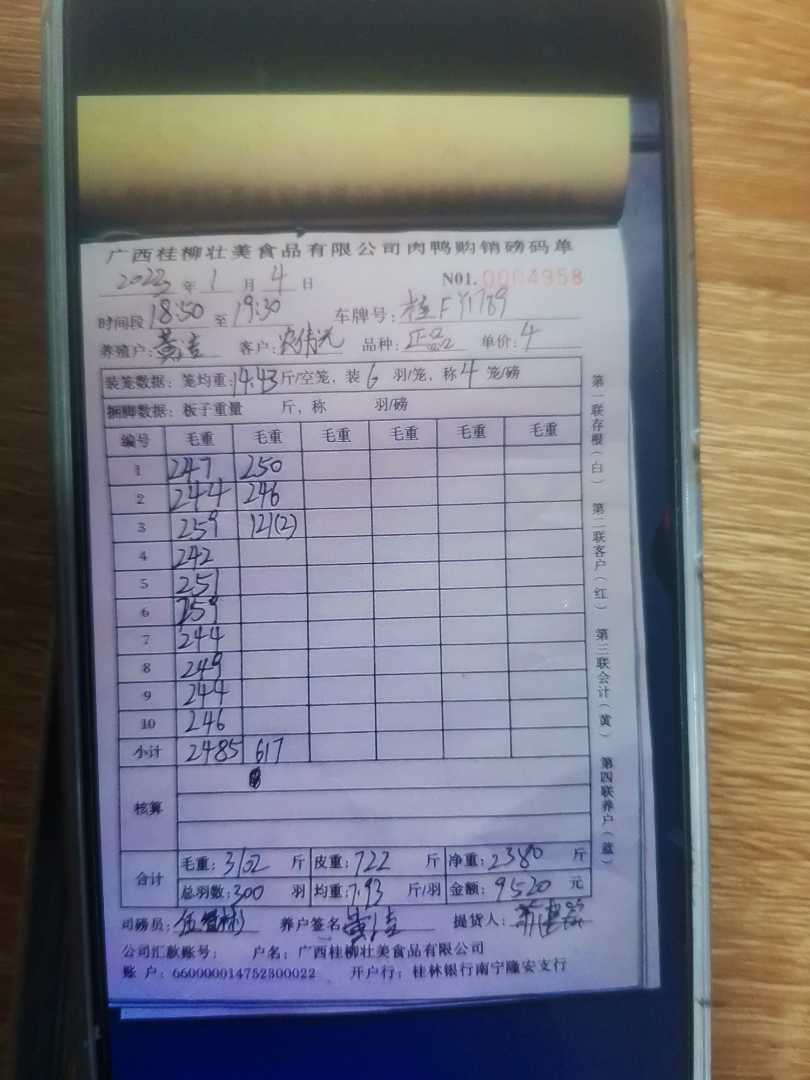 广西桂柳壮美食品有限公司肉鸭购销磅码单
2022年 1 月 4 日 N01.0004958
时间段 18:50 至 19:30 车牌号: 桂FY1789
养殖户: 黄洁 客户: 品种: 正品 单价: 4
装笼数据: 笼均重: 14.43 斤/空笼, 装 6 羽/笼, 称 4 笼/磅
捆脚数据: 板子重量 斤, 称 羽/磅
编号 毛重 毛重 毛重 毛重 毛重 毛重
1 247 250
2 244 246
3 259 121(2)
4 242
5 251
6 259
7 244
8 249
9 244
10 246
小计 2485 617
核算
合计
毛重: 3102 斤 皮重: 722 斤 净重: 2380 斤
总羽数: 300 羽 均重: 7.93 斤/羽 金额: 9520 元
司磅员: 养户签名 黄洁 提货人:
公司汇款账号: 户名: 广西桂柳壮美食品有限公司
账 户: 660000014752300022 开户行: 桂林银行南宁隆安支行
第一联存根(白) 第二联客户(红) 第三联会计(黄) 第四联养户(蓝)